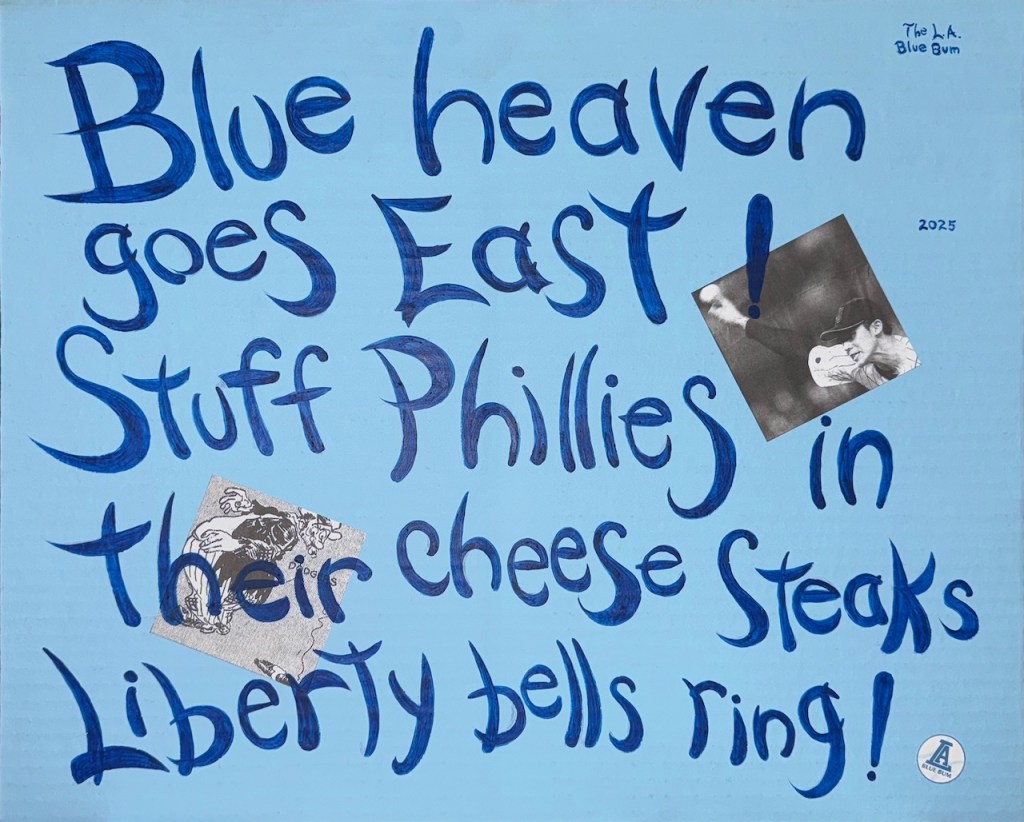 The L.A.
Blue Bum
Blue heaven
goes East!
2025
Stuff Phillies in
their cheese Steaks
DODGERS
Liberty bells ring!
LA
BLUE BUM